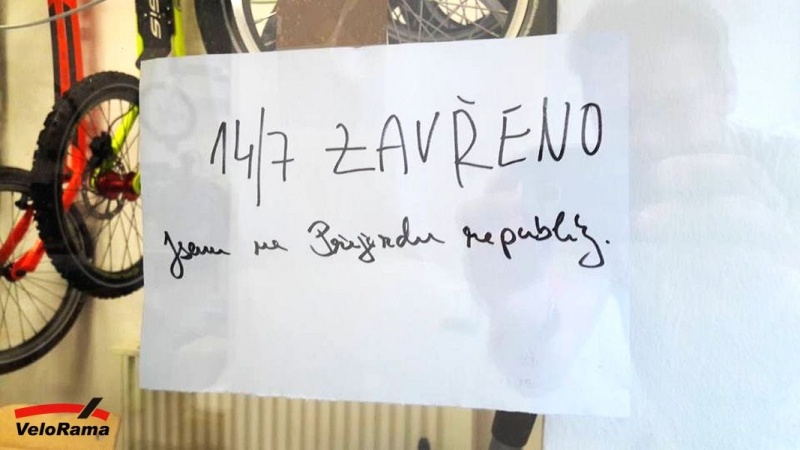 14/7 ZAVŘENO
Jsem na Průjezdu republiky.
VeloRama